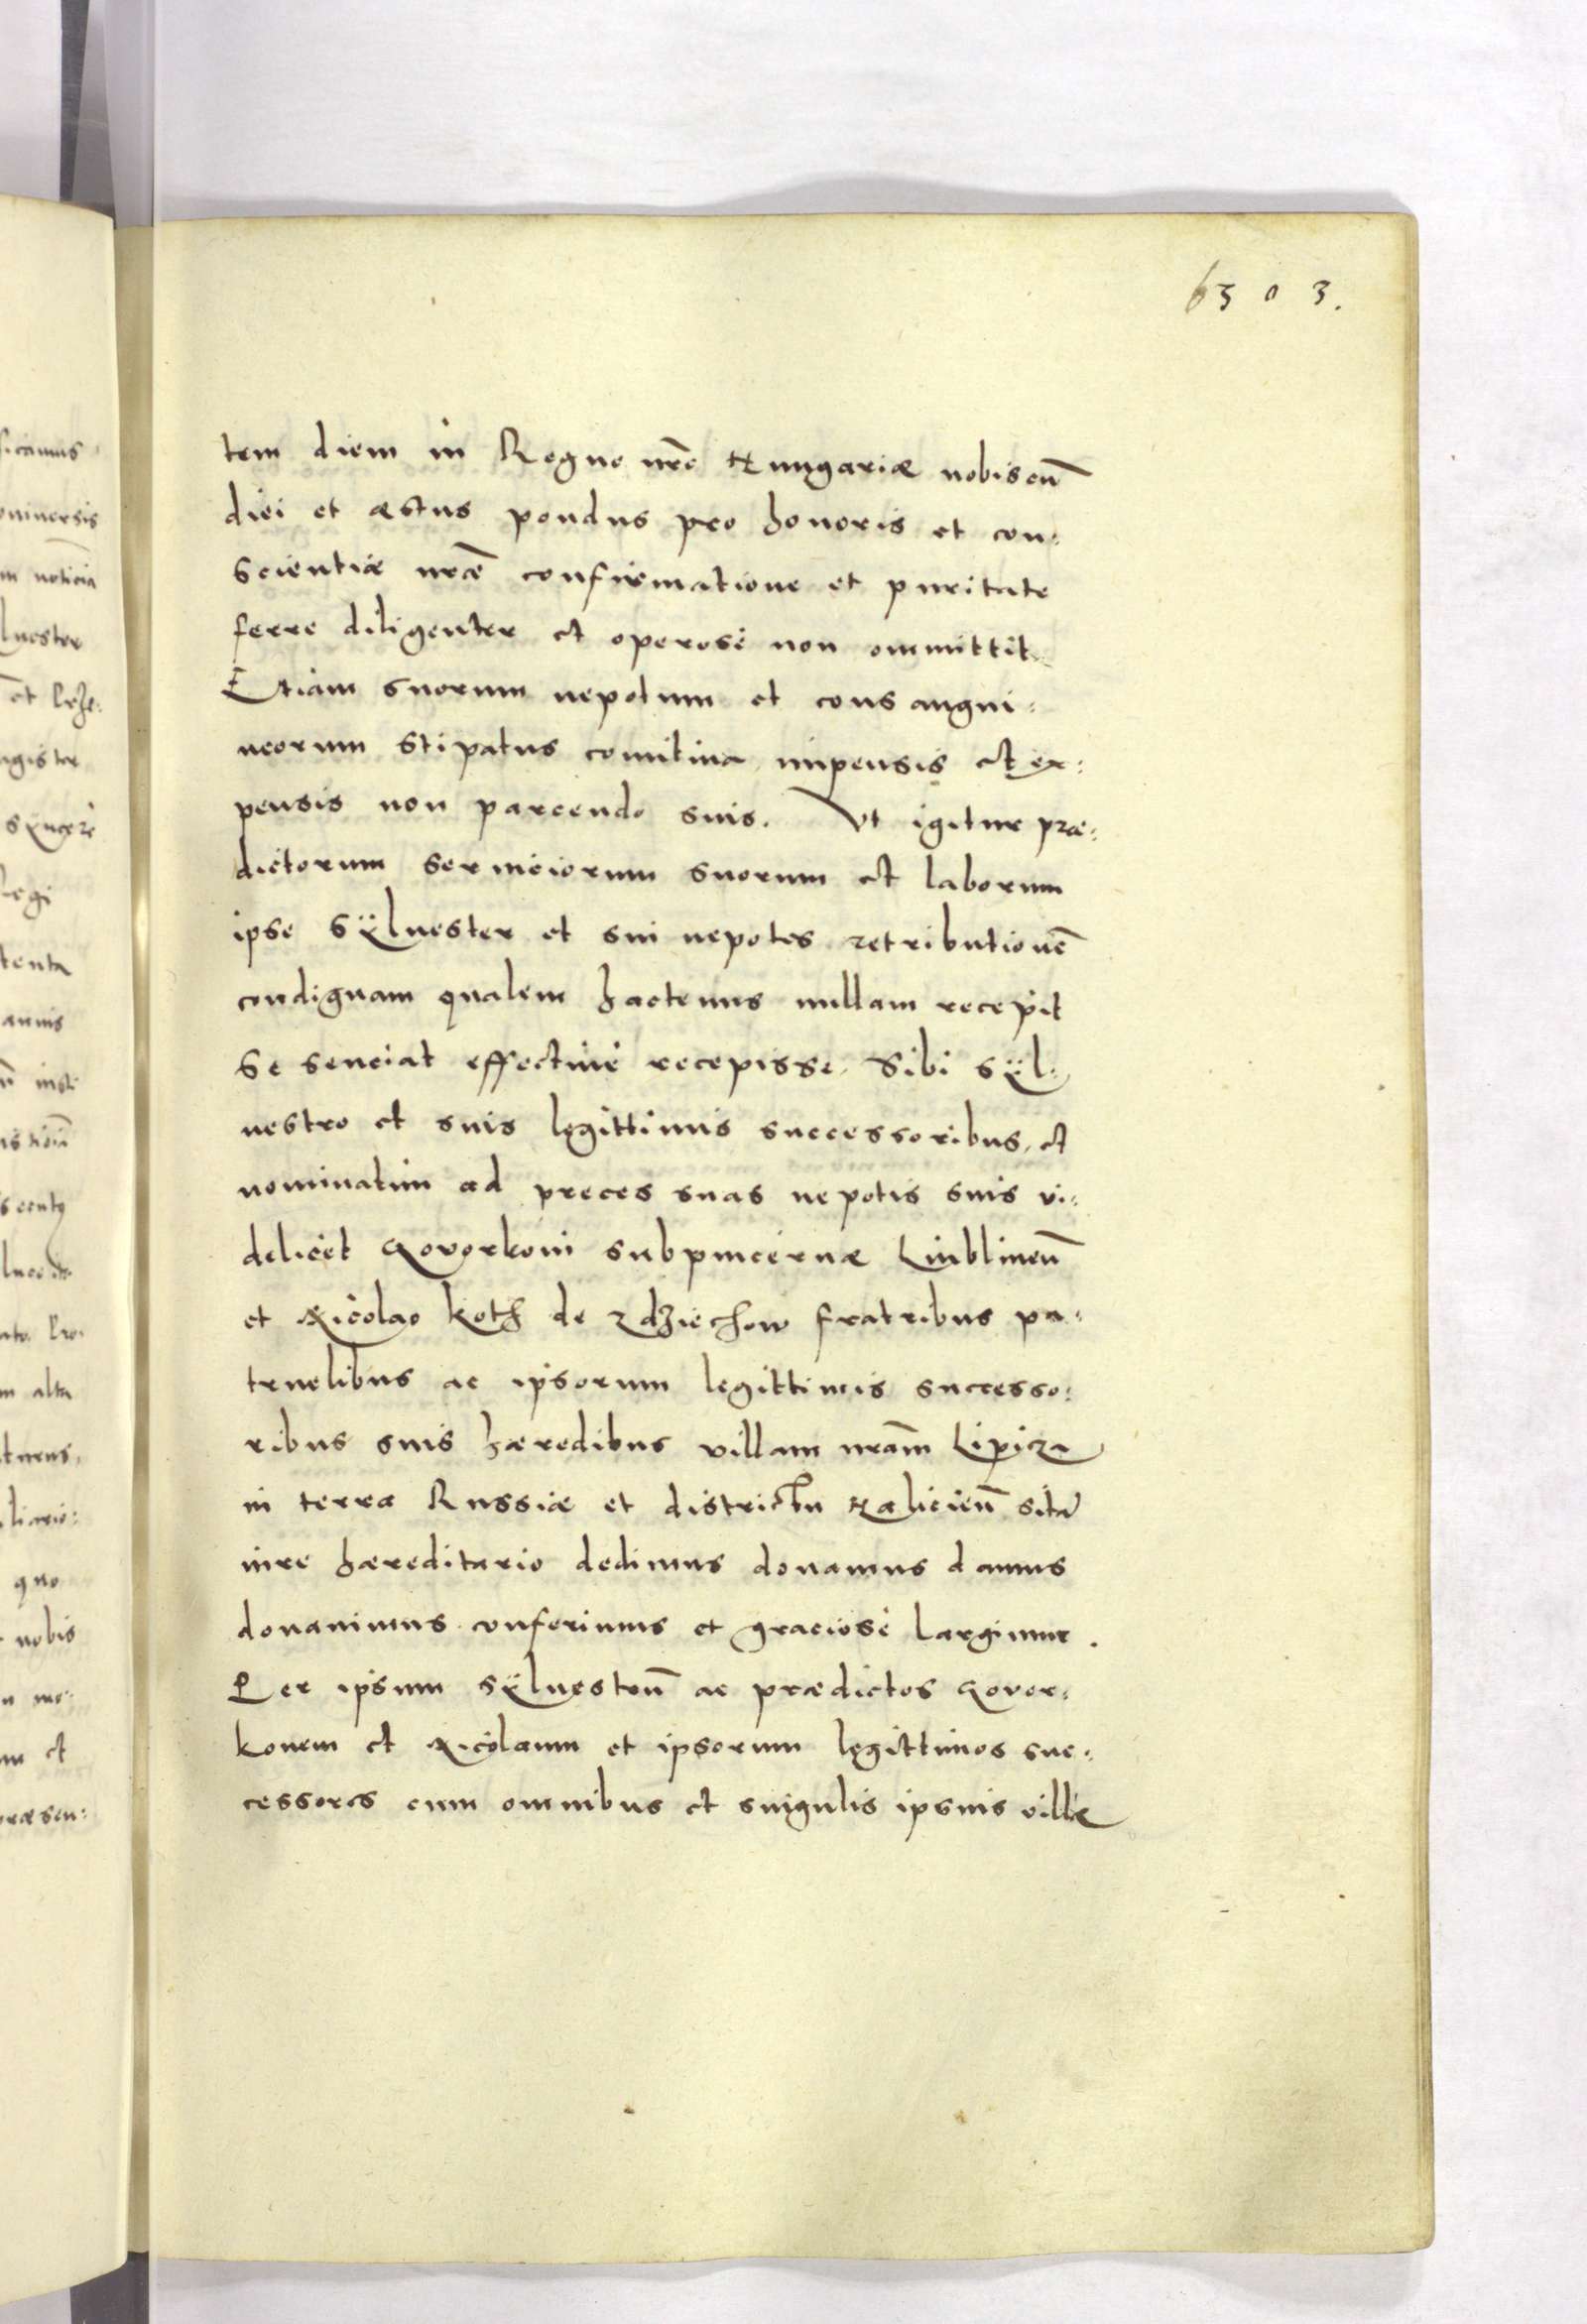 6303.
tem diem in Regno nr̃o Hungariæ nobiscũ
diei et æstus pondus pro honoris et con:
scientiæ nr̃æ confirmatione et puritate
ferre diligenter et operosè non ommittit
Etiam suorum nepotum et consangui:
neorum stipatus comitiua impensis et ex:
pensis non parcendo suis. Vt igitur præ:
dictorum seruiciorum suorum et laborum
ipse Sÿluester et sui nepotes retributionẽ
condignam qualem hactenus nullam recepit
se senciat effectiuè recepisse. Sibi Sÿl:
uestro et suis legittimis successoribus, et
nominatim ad preces suas nepotis suis vi:
delicet Govorkoni subpincernæ Lublineñ
et Nicolao Koth de Zdziechow fratribus pa:
truelibus ac ipsorum legittimis successo:
ribus suis hæredibus villam nr̃am Lipicza
in terra Russiæ et districtu Halicieñ sitã
iure hæreditario dedimus donamus damus
donauimus conferimus et graciosè largimur.
Per ipsum Sÿluestrũ ac prædictos Govor:
konem et Nicolaum et ipsorum legittimos suc:
cessores cum omnibus et singulis ipsius villæ
sicamus
vniuersis
m noticia
luester
agister
Regi
tenta
annis
alta
liario:
quo
nobis
et
ræsen: